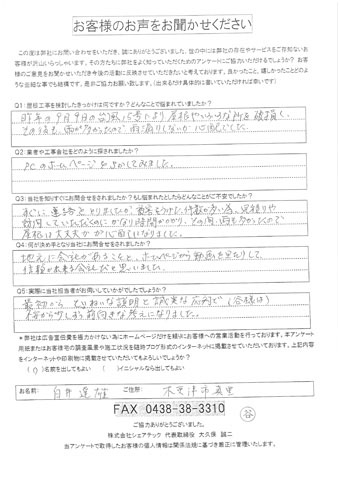 お客様のお声をお聞かせください
この度は弊社にお問い合わせをいただき、誠にありがとうございました。世の中には弊社の存在やサービスをご存知ないお
客様が沢山いらっしゃいます。その方たちに弊社をよく知っていただくためのアンケートにご協力いただけるでしょうか？お客
様のご意見をお聞かせいただき今後の活動に反映させていただきたいと考えております。良かったこと、嬉しかったことどのよ
うな些細な事でも結構です。是非ご協力お願い致します。（出来るだけ具体的に書いていただければ幸いです）
Q1：屋根工事を検討したきっかけは何ですか？どんなことで悩まれていましたか？
昨年の9月9日の台風15号により、屋根やいろいろな所を破損し、
その後も、雨が多かったので雨漏りしないか心配でした。
Q2：業者や工事会社をどのように探されましたか？
PCのホームページをよんでみました。
Q3：当社を知りすぐにお問合せをされましたか？もし悩まれたとしたらどんなことがご不安でしたか？
すぐに連絡をとりましたが、
屋根は大丈夫か
Q4：何が決め手となり当社にお問合せをされましたか？
地元に会社があること、ホームページから動画を見たりして、
信頼が出来る会社だと思いました。
Q5：実際に当社担当者がお伺いしていかがでしたでしょうか？
最初から ていねいな説明と誠実な応対で（谷様は）
＊弊社は広告宣伝費を極力かけない為にホームページだけを頼りにお客様への営業活動を行っております。本アンケート
用紙またはお客様宅の調査風景や施工状況を随時ブログ形式のインターネットに掲載させていただいております。上記内容
をインターネットや印刷物に掲載させていただいてもよろしいでしょうか？
（○）名前を出してもいい （ ）イニシャルなら出してもいい
お名前： 白井 ご住所： 木更津市
FAX 0438-38-3310
谷
ご協力ありがとうございました。
株式会社シェアテック 代表取締役 大久保 誠二
当アンケートで取得したお客様の個人情報は関係法規に基づき厳正に管理いたします。